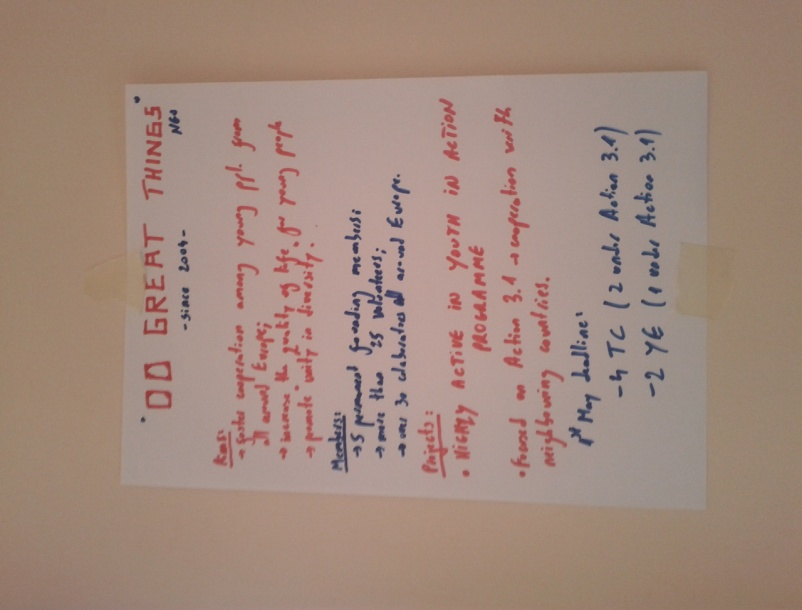 "DO GREAT THINGS"
NGO
- since 2004 -
Aims:
→ foster cooperation among young ppl. from
all around Europe;
→ increase the quality of life for young people
→ promote unity in diversity.
Members:
→ 5 permanent founding members;
→ more than 25 volunteers;
→ over 30 colaborators all around Europe.
Projects:
• HIGHLY ACTIVE IN YOUTH IN ACTION
PROGRAMME
• focused on Action 3.1 → cooperation with
neighbouring countries.
1st May deadline:
- 4 TC (2 under Action 3.1)
- 2 YE (1 under Action 3.1)